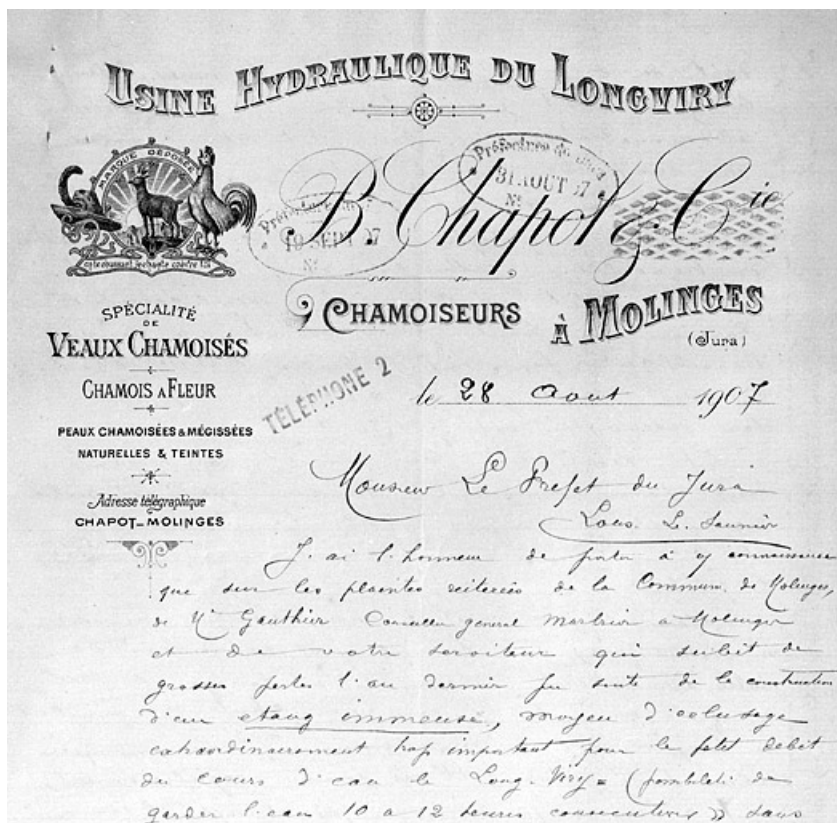 USINE HYDRAULIQUE DU LONGVIRY
MARQUE DÉPOSÉE
Préfecture du Jura
31 AOUT 07
19 SEPT 07
B. Chapot & Cie
CHAMOISEURS
À MOLINGES
(Jura)
SPÉCIALITÉ
DE
VEAUX CHAMOISÉS
CHAMOIS A FLEUR
TÉLÉPHONE 2
le 28 Aout 1907
PEAUX CHAMOISÉES & MÉGISSÉES
NATURELLES & TEINTES
Adresse télégraphique
CHAPOT-MOLINGES
Monsieur Le Prefet du Jura
Lons. L. Saunier
J. ai l. honneur de porter à connaissance
que sur les plaintes reiterées de la Commun. de Molinges,
de Mr Gauthier Conseiller general a Molinges
et de votre serviteur qui subit de
grosses pertes l'an dernier par suite de la construction
d'un etang immense, moyen d'eclusage
extraordinairement trop important pour le petit debit
du cours d'eau le Long-Viry = (de
garder l'eau 10 a 12 heures consecutives) dans